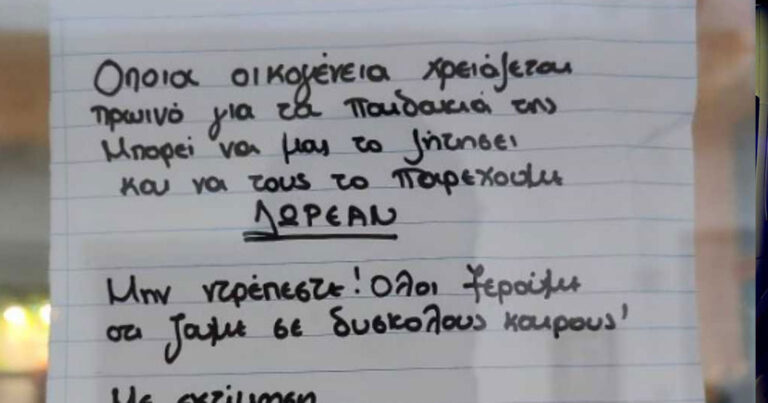 Οποια οικογένεια χρειάζεται
πρωινό για τα παιδακιά της
Μπορεί να μας το ζήτησει
και να τους το παρεχουμε
ΔΩΡΕΑΝ
Μην ντρέπεστε! Ολοι ξερούμε
οτι ζαμε σε δυσκολους καιρους!
Με εκτίμηση